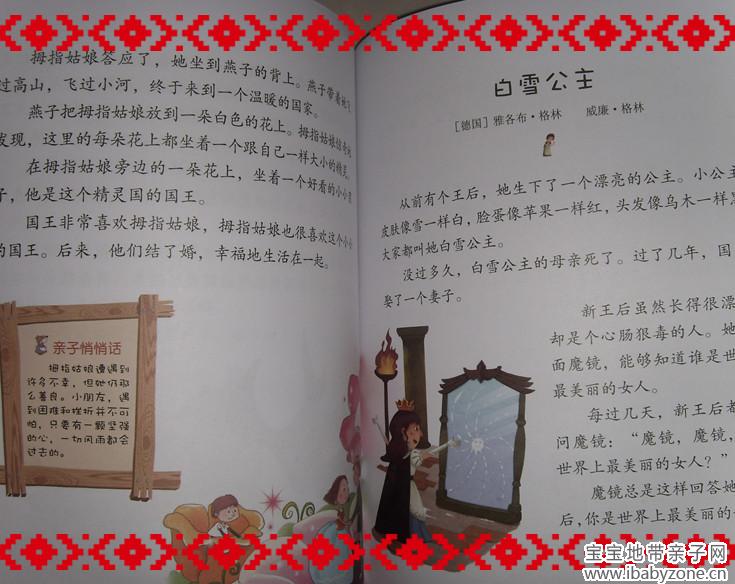 拇指姑娘答应了，她坐到燕子的背上。燕子带着她飞
过高山，飞过小河，终于来到一个温暖的国家。
燕子把拇指姑娘放到一朵白色的花上。拇指姑娘惊奇地
发现，这里的每朵花上都坐着一个跟自己一样大小的精灵。
在拇指姑娘旁边的一朵花上，坐着一个好看的小小男
子，他是这个精灵国的国王。
国王非常喜欢拇指姑娘，拇指姑娘也很喜欢这个小小
的国王。后来，他们结了婚，幸福地生活在一起。
亲子悄悄话
拇指姑娘遭遇到
许多不幸，但她仍那
么善良。小朋友，遇
到困难和挫折并不可
怕，只要有一颗坚强
的心，一切风雨都会
过去的。
白雪公主
[德国] 雅各布·格林 威廉·格林
从前有个王后，她生下了一个漂亮的公主。小公主
皮肤像雪一样白，脸蛋像苹果一样红，头发像乌木一样黑
大家都叫她白雪公主。
没过多久，白雪公主的母亲死了。过了几年，国
娶了一个妻子。
新王后虽然长得很漂
却是个心肠狠毒的人。她
面魔镜，能够知道谁是世
最美丽的女人。
每过几天，新王后者
问魔镜：“魔镜，魔镜，
世界上最美丽的女人？”
魔镜总是这样回答她
后，你是世界上最美丽的
宝宝地带亲子网
www.ibabyzone.cn